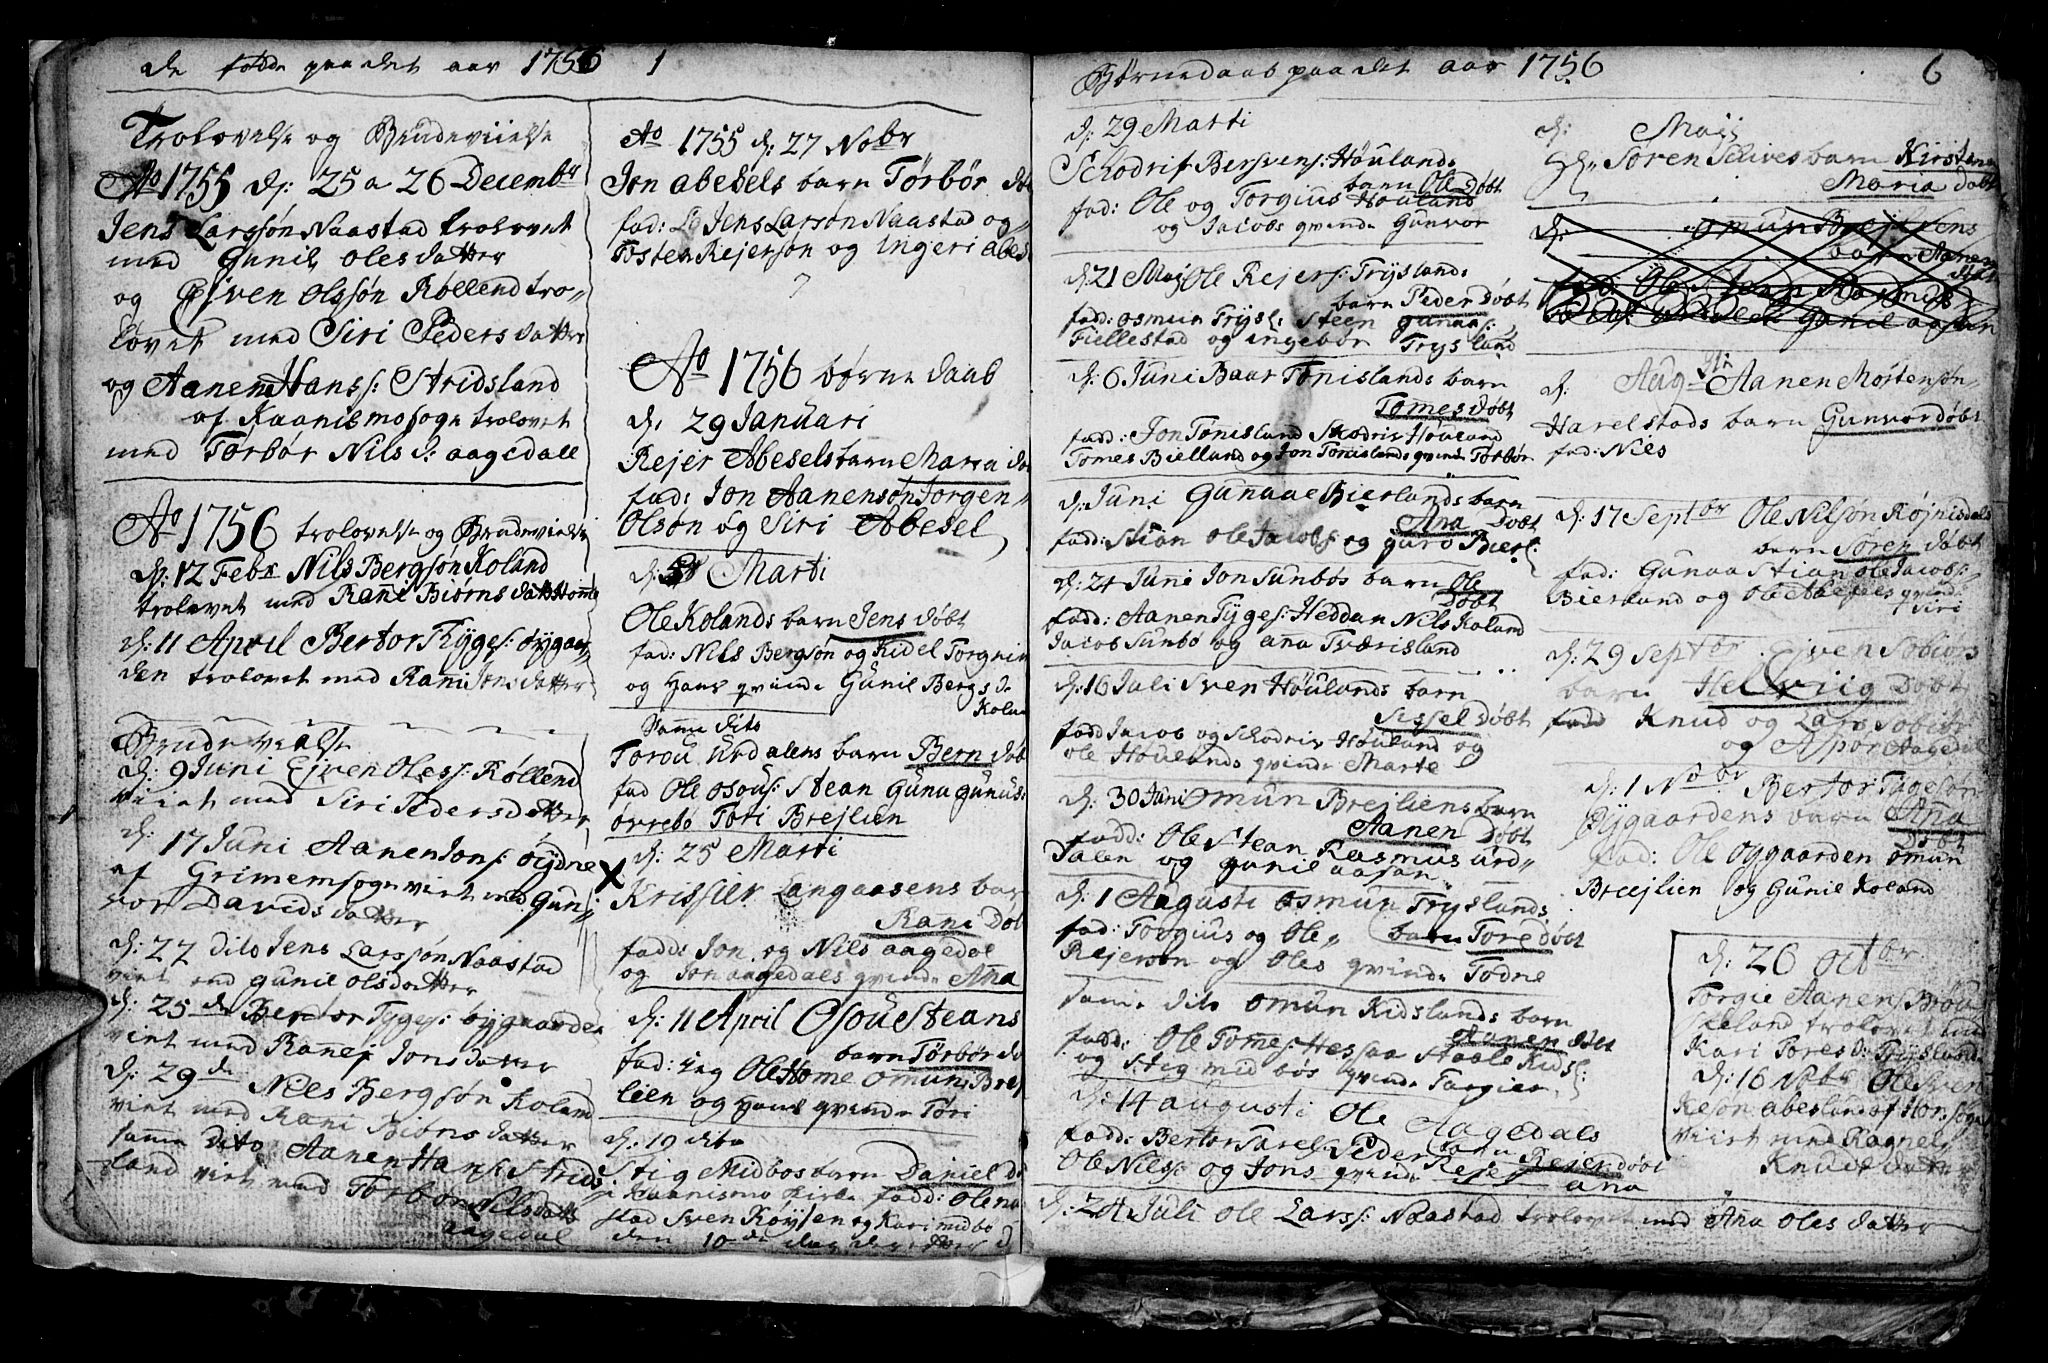 de fødde paa det aar 1756 1
Trolovelse og Brudeviielse
Ao 1755 d: 25 a 26 Decembr
Jens Larssøn Naastad trolovet
med Gunil Olesdatter
og Ejven Olssøn Røllend tro-
lovet med Siri Pedersdatter
og Aanen Hans: Stridsland
af Kaanismo sogn trolovet
med Torbør Nils d: aagedall
Ao 1756 trolovelse og Brudevielse
d: 12 Febr Nils Bergsøn Koland
trolovet med Rani Biørnsdatter
d: 11 April Bertor Tyges: øygaar
den trolovet med Rani Jonsdatter
Brudevielse
d: 9 Juni Ejven Oless: Røllend
viet med Siri Pedersdatter
d: 17 Juni Aanen Jons: øydne
af Grimem sogn viet med Gun
vor Davidsdatter
d: 22 dito Jens Larssøn Naastad
viet med gunil olsdatter
d: 25 de Bertor Tyges: øygaarden
viet med Ranej Jonsdatter
d: 29 de Niels Bergsøn Koland
viet med Rani Biønsdatter
samme Dito Aanen Hans: Strids
land viet med Torbor Nilsdatter
aagedal
Ao 1755 d: 27 Nobr
Jon abesels barn Torbør
fad: Jens Larsøn Naastad og
Tosten Rejersøn og Ingeri abes
Ao 1756 børne daab
d: 29 Januari
Rejer Abesels barn Maria
fad: Jon Aanensøn Jorgen
Olsøn og Siri Abesel
d: Marti
Ole Kolands barn Jens døbt
fad: Nils Bergsøn og Kidel Torgni
og Hans qvinde Gunil Bergs d:
Kolan
Samme dito
Torou Urdalens barn Bern døb
fad Ole osous: Stean Gunu gunus:
ørrebø Tori Brejlien
d: 25 Marti
Langaasens bar
Rani Døb
fadd: Jon og Nils aagedal
og Jon aagedals qvinde Ana
d: 11 April Osou Steans
barn Torbør dø
fad: jeg Ole Home omun Brej
lien og Hans qvinde Tori
d: 19 dito
Stig Midbøs barn Daniel d
i Kaanismo Kirke fadd: Ole na
stad Sven Røysen og Kari midbø
den 10de dag der etter
Børnedaab paa det aar 1756 6
d: 29 Marti
Schodrif Bersvens: Høulands
barn Ole Døbt
fad: Ole og Torgius Høuland
og Jacobs qvinde Gunvor
d: 21 Maj Ole Rejers: Tryslands
barn Peder Døbt
fad: osmun Trysl: Steen gunaas:
Fiellestad og ingebør Trysland
d: 6 Juni Baar Tonislands barn
Tomes døbt
fadd: Jon Tonisland Skodriv Høuland
Tomes Bielland og Jon Tonislands qvinde Torbør
d: Juni Gunaae Bierlands barn
Ana Døbt
fadd: Stian Ole Jacobs: og guro Bierl:
d: 24 Juni Jon Sunbøs barn Ole
Døbt
fadd: Aanen Tyges: Heddan Nils Koland
Jacob Sunbø og ana Tværisland
d: 16 Juli Sven Høulands barn
Sissel Døbt
fadd Jacob og Schodriv Høuland og
ole Høulands qvinde Marte
d: 30 Juni omun Brejliens barn
Aanen Døbt
fadd: Ole Stean Rasmus urd-
dalen og gunil aasan
d: 1 Augusti osmun Tryslands
barn Tore døbt
fad: Torgius og Ole
Rejersøn og Oles qvinde Todne
samme dito omun Kidslands barn
Aanen døbt
fadd: Ole Tomes: Hessaa Staale Kidsl:
og Stig midbøs qvinde Targier
d: 14 augusti Ole Aagedals
barn Rejer døbt
fadd: Bertor Tarel: Peder
Ole Nils: og Jons qvinde ana
d: 24 Juli Ole Larss: Naastad trolovet med Ana Olesdatter
d: Maij
Søren Schives barn Kirsten
Maria døbt
d: omun Brejliens
barn Aanen
døbt
fad: Ole Stean Rasmus
urdalen Gunil aasan
d: Aug: Aanen Mortensøn
Harelstads barn Gunvor døbt
fad: Niels
d: 17 Septbr Ole Nilsøn Røjnisdals
barn Søren Døbt
fad: Gunaa Stian Ole Jacobs:
Bierland og Ole Abesels qvinde
Siri
d: 29 Septbr Ejven Sobiørs
barn Hellviig Døbt
fadd Knud og Lars Sobiør
og Aspør Aagedal
d: 1 Nobr Bertor Tygesøn
Øygaardens barn Ana
Døbt
fad: Ole øygaarden omun
Brejlien og Gunil Koland
d: 26 octbr
Torgie Aanens: Brøu
skeland trolovet med
Kari Tores d: Trysland
d: 16 Nobr Ole Sven
kesøn abesland af Hor: sogn
viet med Ragnel
Knudsdatter